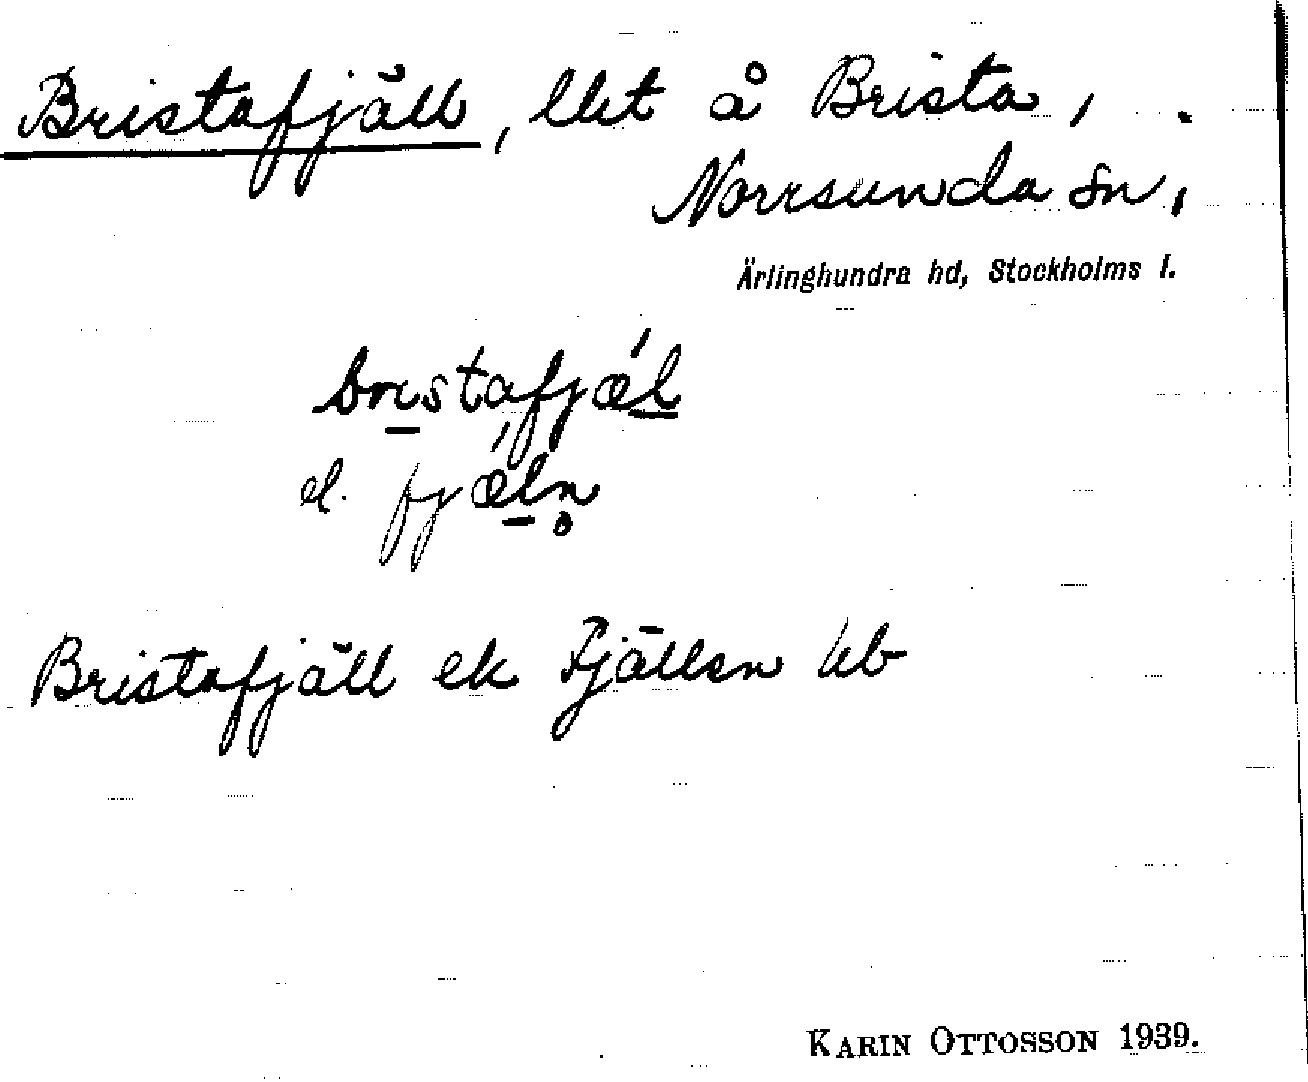 Bristafjäll, llet å Brista,
Norrsunda sn,
Ärlinghundra hd, Stockholms l.
bristafjæ̀l
el. fjæ̀ln̥
Bristafjäll ek Fjällen hb
KARIN OTTOSSON 1939.